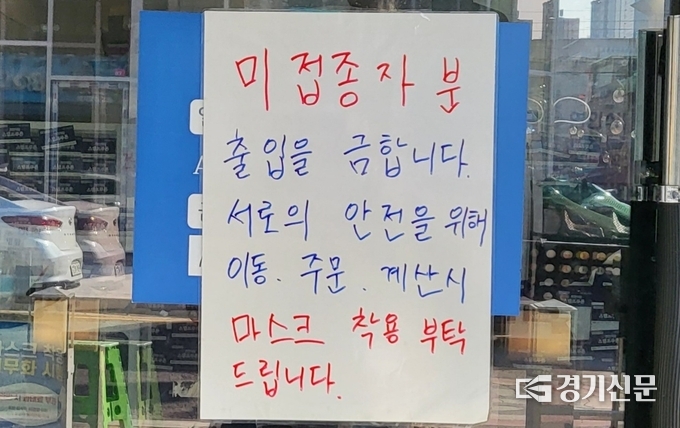 미접종자분
출입을 금합니다.
서로의 안전을 위해
이동. 주문. 계산시
마스크 착용 부탁
드립니다.
경기신문